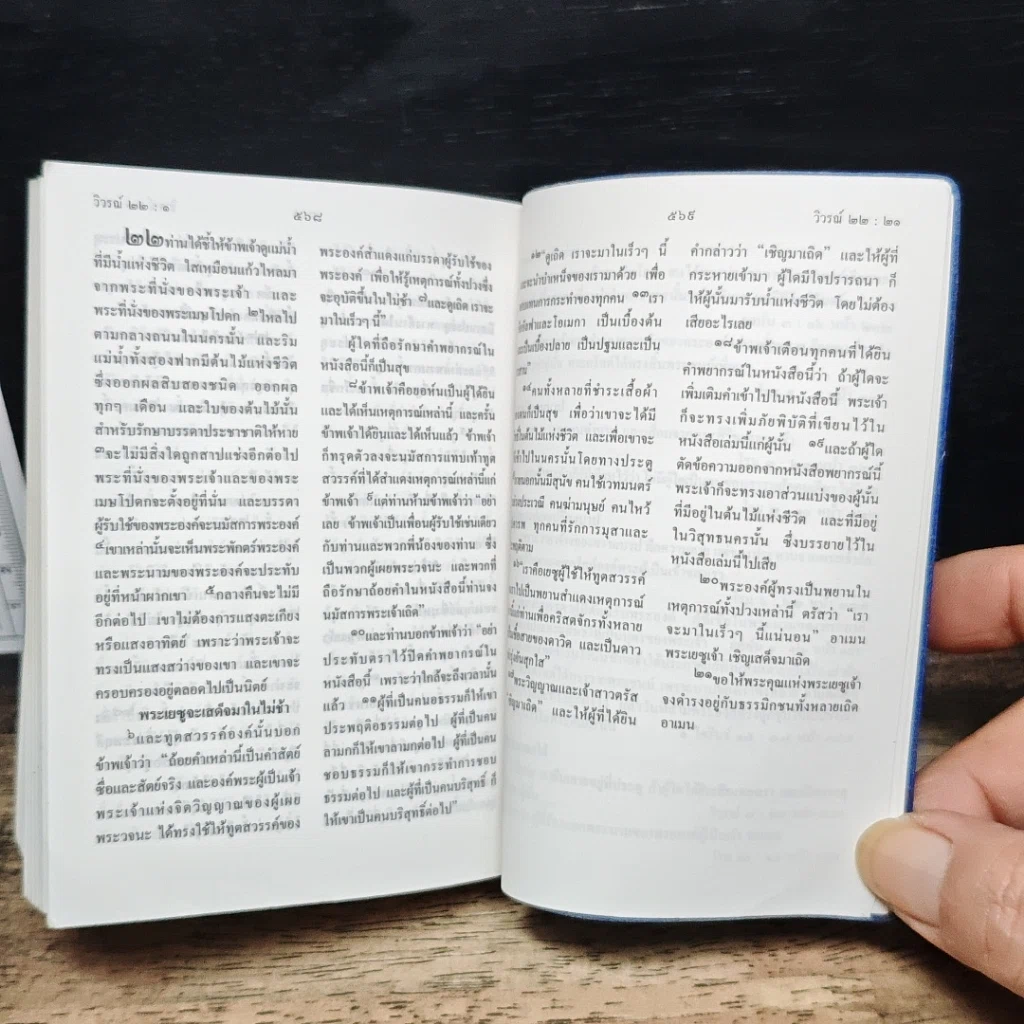 วิวรณ์ ๒๒ : ๑
๕๖๘
๒๒ท่านได้ชี้ให้ข้าพเจ้าดูแม่น้ำ
ที่มีน้ำแห่งชีวิต ใสเหมือนแก้วไหลมา
จากพระที่นั่งของพระเจ้า และ
พระที่นั่งของพระเมษโปดก ๒ไหลไป
ตามกลางถนนในนครนั้น และริม
แม่น้ำทั้งสองฟากมีต้นไม้แห่งชีวิต
ซึ่งออกผลสิบสองชนิด ออกผล
ทุกๆ เดือน และใบของต้นไม้นั้น
สำหรับรักษาบรรดาประชาชาติให้หาย
๓จะไม่มีสิ่งใดถูกสาปแช่งอีกต่อไป
พระที่นั่งของพระเจ้าและของพระ
เมษโปดกจะตั้งอยู่ที่นั่น และบรรดา
ผู้รับใช้ของพระองค์จะนมัสการพระองค์
๔เขาเหล่านั้นจะเห็นพระพักตร์พระองค์
และพระนามของพระองค์จะประทับ
อยู่ที่หน้าผากเขา ๕กลางคืนจะไม่มี
อีกต่อไป เขาไม่ต้องการแสงตะเกียง
หรือแสงอาทิตย์ เพราะว่าพระเจ้าจะ
ทรงเป็นแสงสว่างของเขา และเขาจะ
ครอบครองอยู่ตลอดไปเป็นนิตย์
พระเยซูจะเสด็จมาในไม่ช้า
๖และทูตสวรรค์องค์นั้นบอก
ข้าพเจ้าว่า “ถ้อยคำเหล่านี้เป็นคำสัตย์
ซื่อและสัตย์จริง และองค์พระผู้เป็นเจ้า
พระเจ้าแห่งจิตวิญญาณของผู้เผย
พระวจนะ ได้ทรงใช้ให้ทูตสวรรค์ของ
พระองค์สำแดงแก่บรรดาผู้รับใช้ของ
พระองค์ เพื่อให้รู้เหตุการณ์ทั้งปวงซึ่ง
จะอุบัติขึ้นในไม่ช้า ๗และดูเถิด เราจะ
มาในเร็วๆ นี้”
ผู้ใดที่ถือรักษาคำพยากรณ์ใน
หนังสือนี้ก็เป็นสุข
๘ข้าพเจ้าคือยอห์นเป็นผู้ได้ยิน
และได้เห็นเหตุการณ์เหล่านี้ และครั้น
ข้าพเจ้าได้ยินและได้เห็นแล้ว ข้าพเจ้า
ก็ทรุดตัวลงจะนมัสการแทบเท้าทูต
สวรรค์ที่ได้สำแดงเหตุการณ์เหล่านี้แก่
ข้าพเจ้า ๙แต่ท่านห้ามข้าพเจ้าว่า “อย่า
เลย ข้าพเจ้าเป็นเพื่อนผู้รับใช้เช่นเดียว
กับท่านและพวกพี่น้องของท่าน ซึ่ง
เป็นพวกผู้เผยพระวจนะ และพวกที่
ถือรักษาถ้อยคำในหนังสือนี้ท่านจง
นมัสการพระเจ้าเถิด”
๑๐และท่านบอกข้าพเจ้าว่า “อย่า
ประทับตราไว้ปิดคำพยากรณ์ใน
หนังสือนี้ เพราะว่าใกล้จะถึงเวลานั้น
แล้ว ๑๑ผู้ที่เป็นคนอธรรมก็ให้เขา
ประพฤติอธรรมต่อไป ผู้ที่เป็นคน
ลามกก็ให้เขาลามกต่อไป ผู้ที่เป็นคน
ชอบธรรมก็ให้เขากระทำการชอบ
ธรรมต่อไป และผู้ที่เป็นคนบริสุทธิ์ ก็
ให้เขาเป็นคนบริสุทธิ์ต่อไป”
๕๖๙
วิวรณ์ ๒๒ : ๒๑
๑๒“ดูเถิด เราจะมาในเร็วๆ นี้
และจะนำบำเหน็จของเรามาด้วย เพื่อ
ตอบแทนการกระทำของทุกคน ๑๓เรา
อัลฟาและโอเมกา เป็นเบื้องต้น
และเป็นเบื้องปลาย เป็นปฐมและเป็น
๑๔คนทั้งหลายที่ชำระเสื้อผ้า
ก็เป็นสุข เพื่อว่าเขาจะได้มี
ต้นไม้แห่งชีวิต และเพื่อเขาจะ
เข้าไปในนครนั้นโดยทางประตู
นอกนั้นมีสุนัข คนใช้เวทมนตร์
คนฆ่ามนุษย์ คนไหว้
ทุกคนที่รักการมุสาและ
๑๖“เราคือเยซูผู้ใช้ให้ทูตสวรรค์
ไปเป็นพยานสำแดงเหตุการณ์
แก่ท่านเพื่อคริสตจักรทั้งหลาย
เชื้อสายของดาวิด และเป็นดาว
รุ่งอันสุกใส”
๑๗พระวิญญาณและเจ้าสาวตรัส
“เชิญมาเถิด” และให้ผู้ที่ได้ยิน
คำกล่าวว่า “เชิญมาเถิด” และให้ผู้ที่
กระหายเข้ามา ผู้ใดมีใจปรารถนา ก็
ให้ผู้นั้นมารับน้ำแห่งชีวิต โดยไม่ต้อง
เสียอะไรเลย
๑๘ข้าพเจ้าเตือนทุกคนที่ได้ยิน
คำพยากรณ์ในหนังสือนี้ว่า ถ้าผู้ใดจะ
เพิ่มเติมคำเข้าไปในหนังสือนี้ พระเจ้า
ก็จะทรงเพิ่มภัยพิบัติที่เขียนไว้ใน
หนังสือเล่มนี้แก่ผู้นั้น ๑๙และถ้าผู้ใด
ตัดข้อความออกจากหนังสือพยากรณ์นี้
พระเจ้าก็จะทรงเอาส่วนแบ่งของผู้นั้น
ที่มีอยู่ในต้นไม้แห่งชีวิต และที่มีอยู่
ในวิสุทธนครนั้น ซึ่งบรรยายไว้ใน
หนังสือเล่มนี้ไปเสีย
๒๐พระองค์ผู้ทรงเป็นพยานใน
เหตุการณ์ทั้งปวงเหล่านี้ ตรัสว่า “เรา
จะมาในเร็วๆ นี้แน่นอน” อาเมน
พระเยซูเจ้า เชิญเสด็จมาเถิด
๒๑ขอให้พระคุณแห่งพระเยซูเจ้า
จงดำรงอยู่กับธรรมิกชนทั้งหลายเถิด
อาเมน